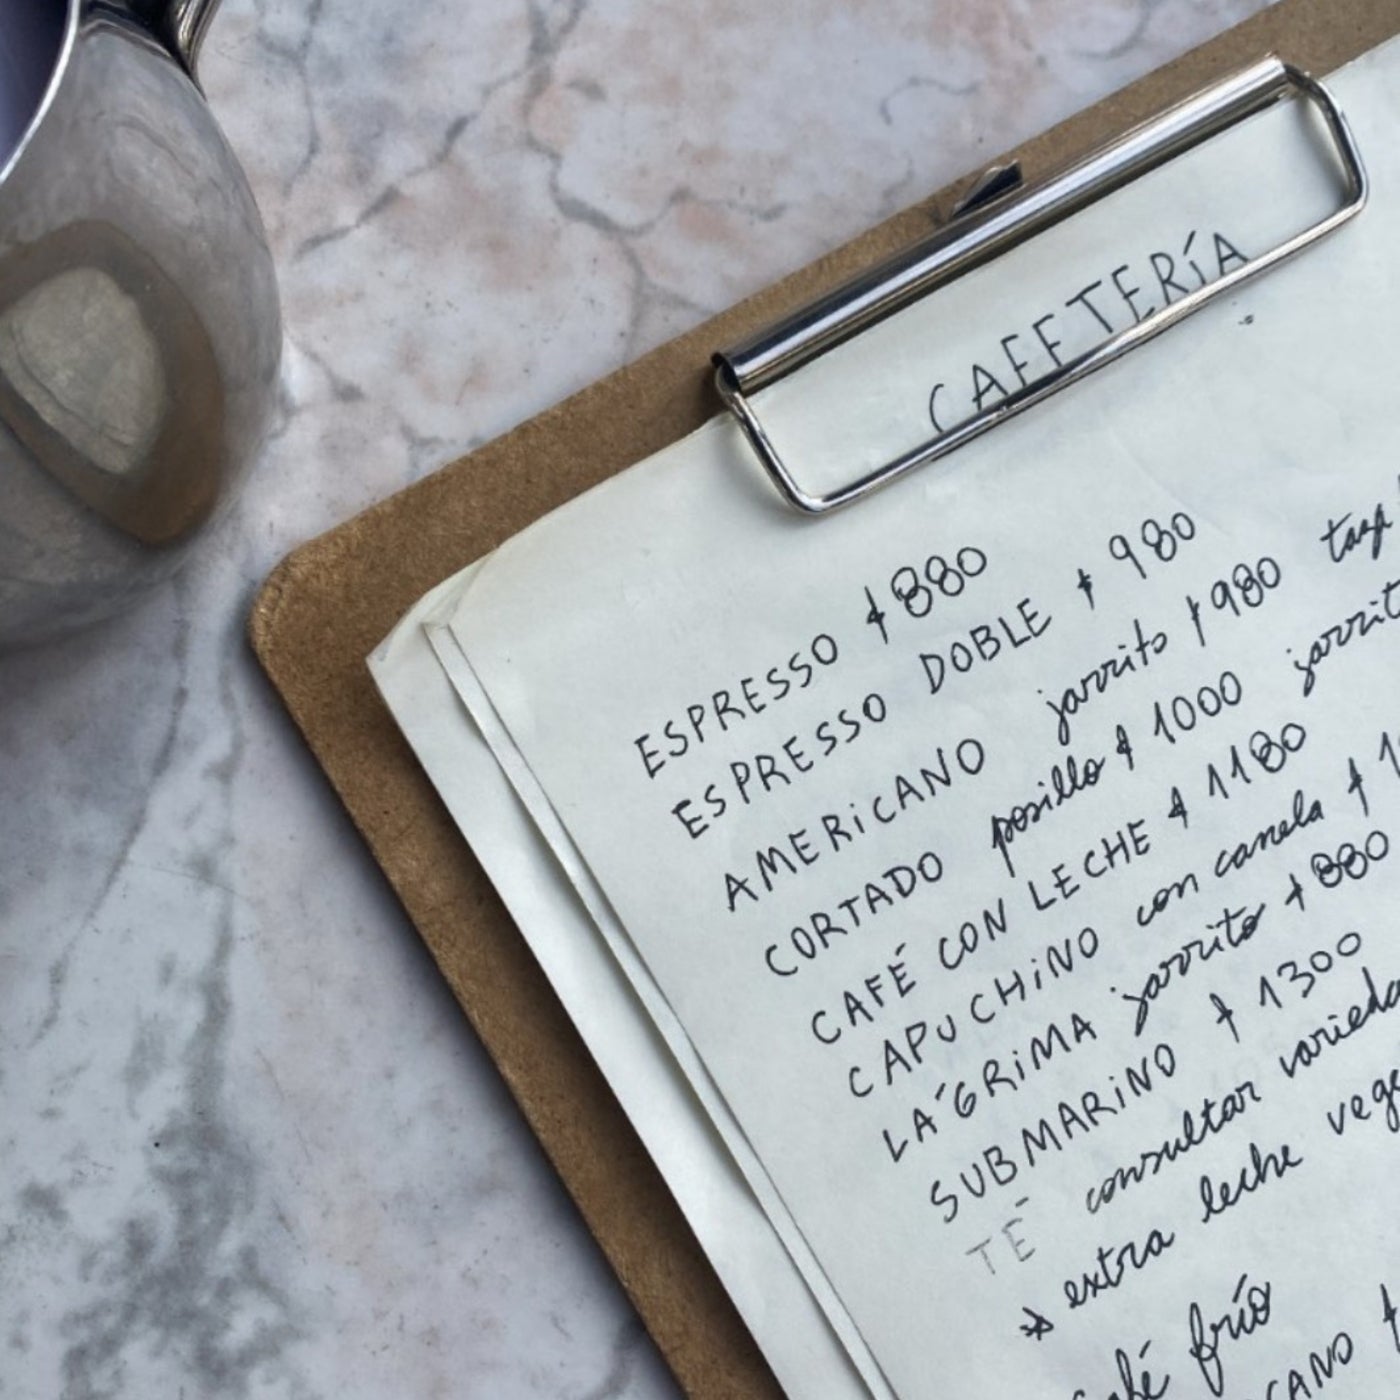 CAFETERÍA
ESPRESSO $880
ESPRESSO DOBLE $980
AMERICANO jarrito $980
CORTADO posillo $1000
CAFÉ CON LECHE $1180
CAPUCHINO con canela $
LÁGRIMA jarrito $880
SUBMARINO $1300
TÉ consultar
* extra leche
frío